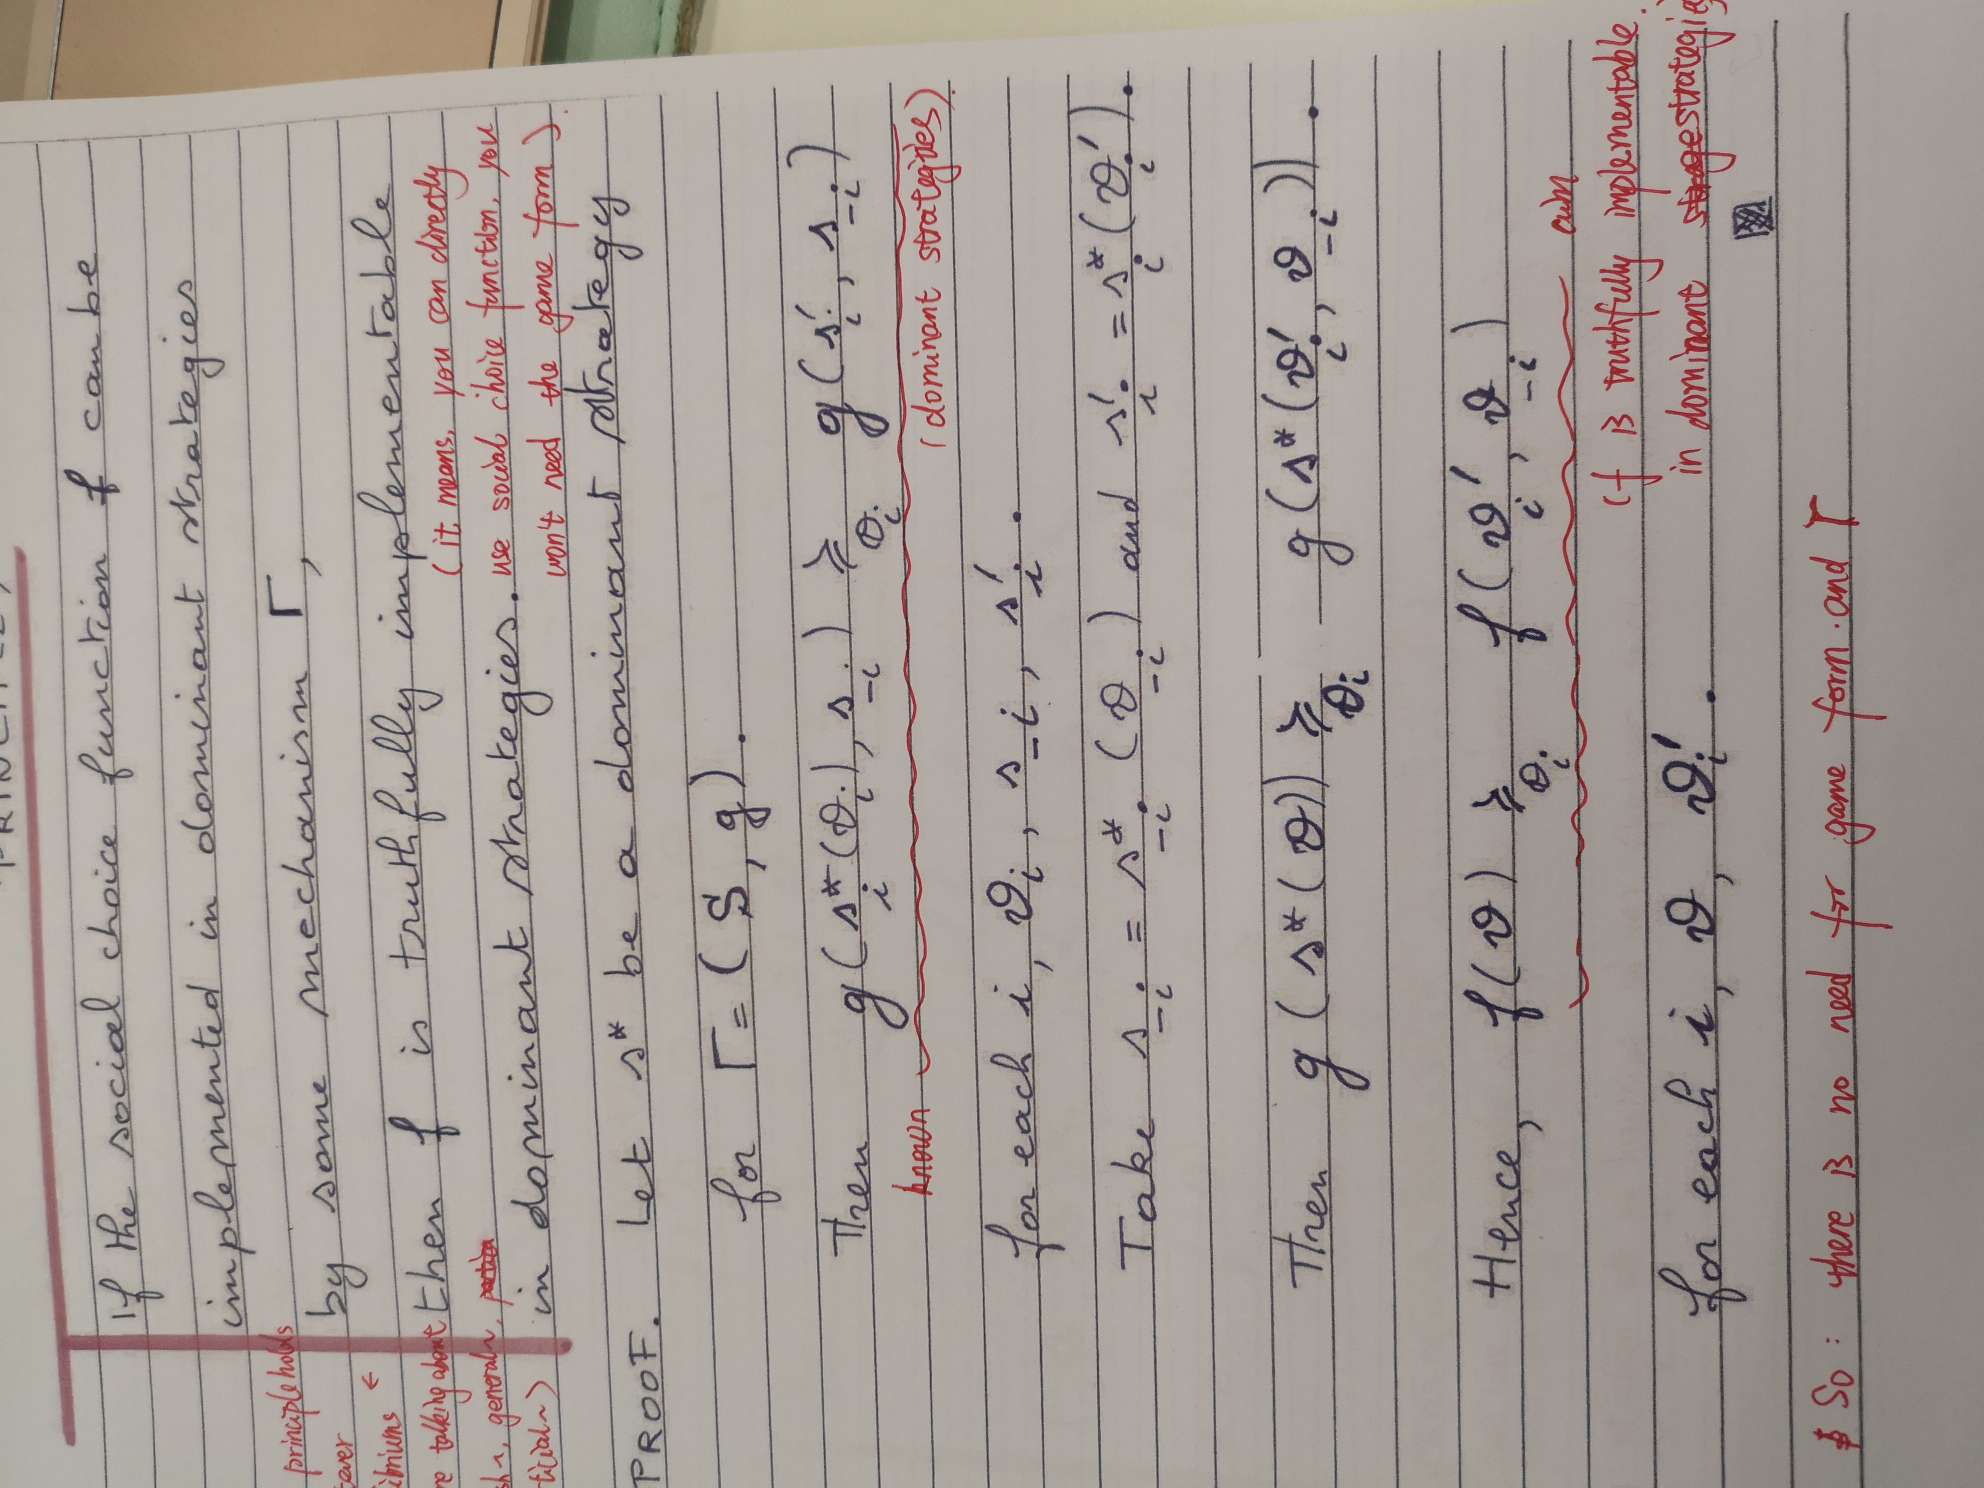 If the social choice function f can be
implemented in dominant strategies
by some mechanism Γ,
then f is truthfully implementable
(it means, you can directly
in dominant strategies.
use social choice function, you
won't need the game form).
principle holds
talking about
general
PROOF. Let s* be a dominant strategy
for Γ = (S, g).
Then g(s*_i(ϑ_i), s_-i) ≥_ϑ_i g(s'_i, s_-i)
known (dominant strategies).
for each i, ϑ_i, s_-i, s'_i.
Take s_-i = s*_-i(ϑ_-i) and s'_i = s*_i(ϑ'_i).
Then g(s*(ϑ)) ≥_ϑ_i g(s*(ϑ'_i, ϑ_-i)).
Hence, f(ϑ) ≥_ϑ_i f(ϑ'_i, ϑ_-i)
aim
(f is truthfully implementable
in dominant strategies)
for each i, ϑ, ϑ'_i.
So: there is no need for game form. and Γ